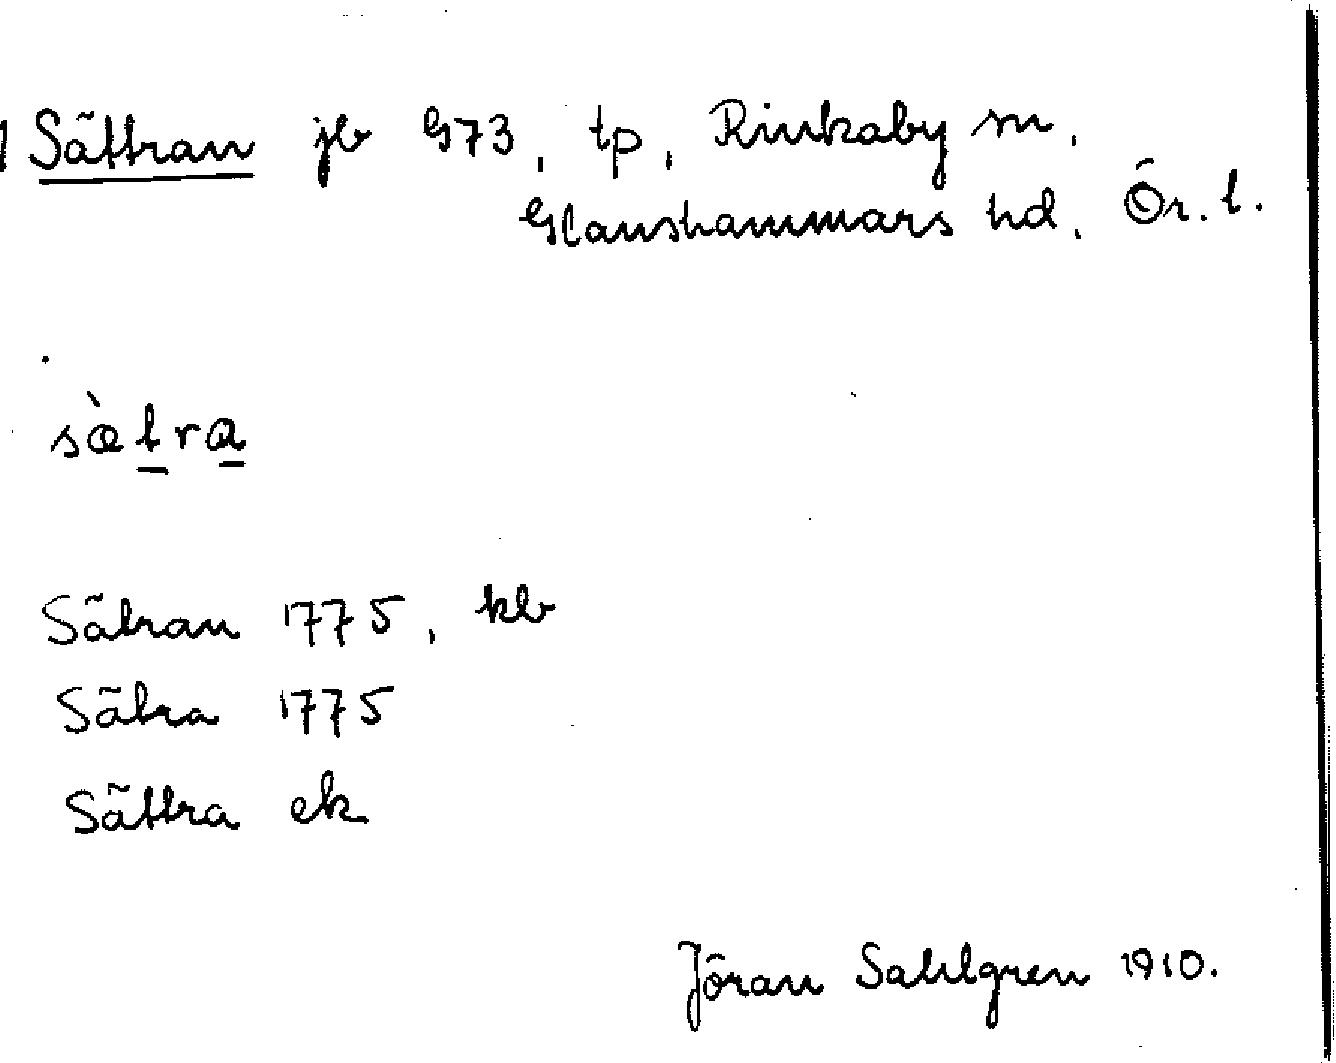 Sättran jb G73, tp, Rinkaby sn,
Glanshammars hd, Ör. l.
sæ̀t̲ra̲
Sätran 1775, kb
Sätra 1775
Sättra ek
Jöran Sahlgren 1910.